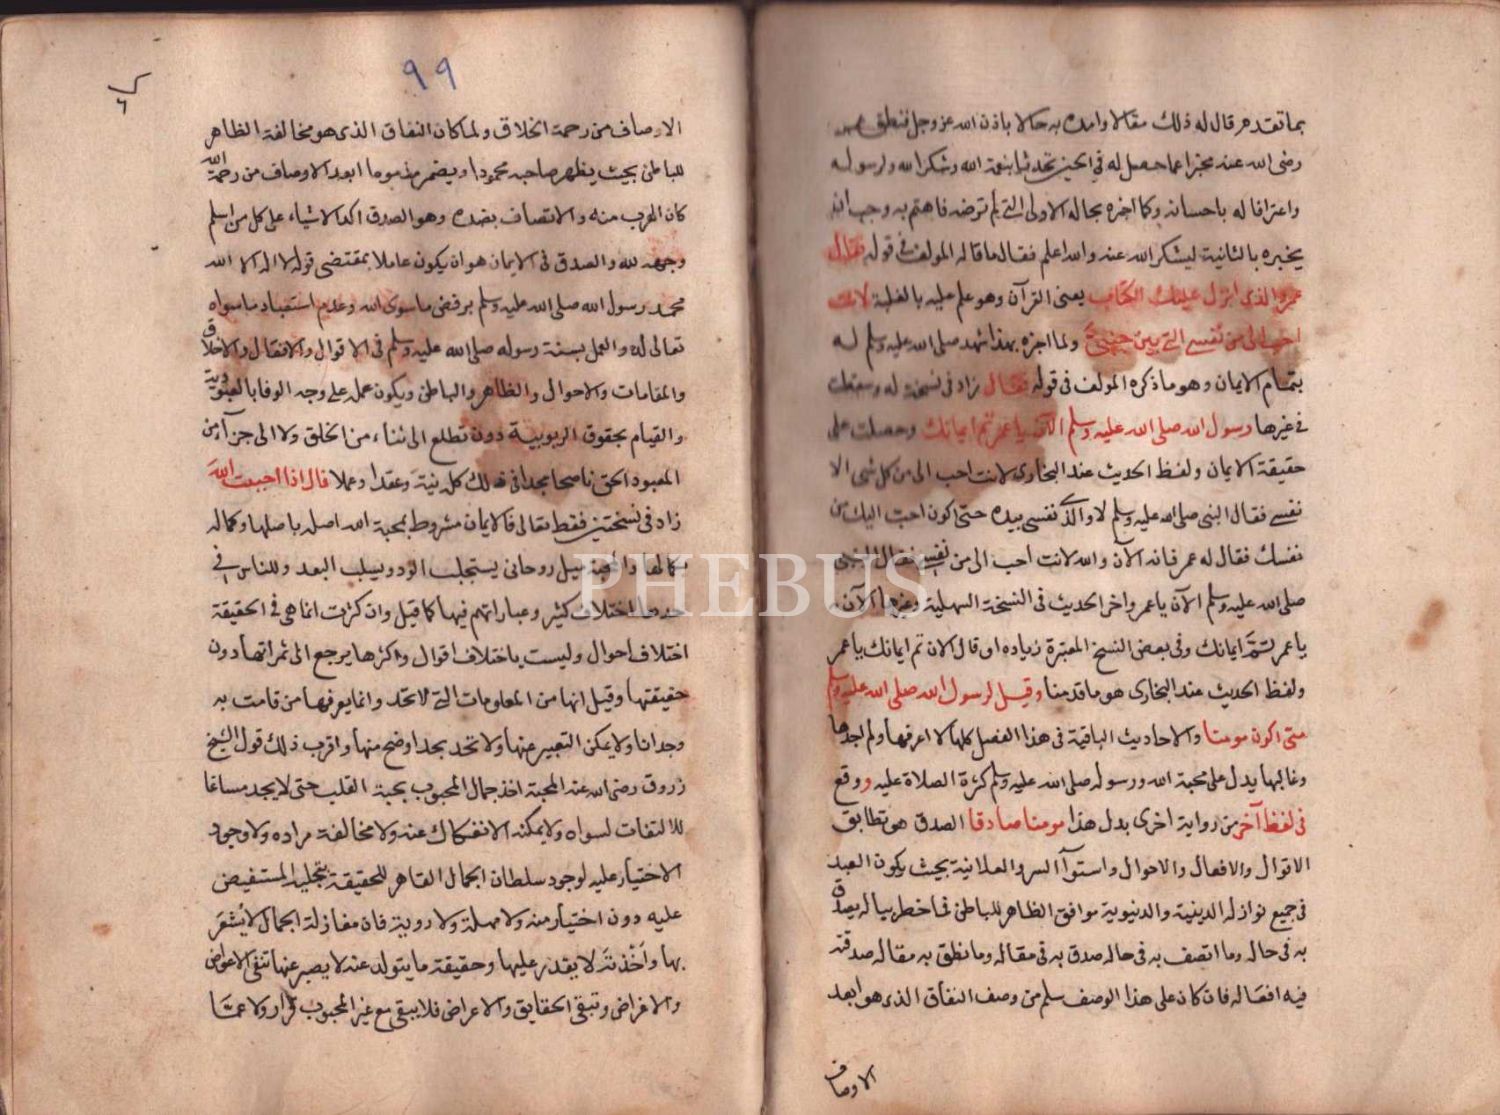 بما تقدم قال له ذلك مقالا وامده به حالا باذن الله عز وجل فنطق عمر
رضى الله عنه مخبرا عما حصل له في الحين تحدثا بنعمة الله وشكرا لله ولرسوله
واعترافا له باحسانه وكما اخبره بحاله الاولى التي لم ترضه فاهتم به وجب ان
يخبره بالثانية ليشكر الله عنه والله اعلم فقال ما قاله المولف في قوله فقال
عمر والذى انزل عليك الكتاب يعنى القرآن وهو علم عليه بالغلبة لانت
احب الى من نفسى التى بين جنبى ولما اخبره بهذا شهد صلى الله عليه وسلم له
بتمام الايمان وهو ما ذكره المولف فى قوله فقال زاد فى نسخة له وسقطت
فى غيرها رسول الله صلى الله عليه وسلم الآن يا عمر تم ايمانك وحصلت على
حقيقة الايمان ولفظ الحديث عند البخارى لانت احب الى من كل شى الا
نفسى فقال النبى صلى الله عليه وسلم لا والذى نفسى بيده حتى اكون احب اليك من
نفسك فقال له عمر فانه الآن والله لانت احب الى من نفسى فقال النبى
صلى الله عليه وسلم الآن يا عمر واخر الحديث فى النسخة السهلية وغيرها الآن
يا عمر تم ايمانك وفى بعض النسخ المعتبرة زيادة او قال الان تم ايمانك يا عمر
ولفظ الحديث عند البخارى هو ما قدمنا وقيل لرسول الله صلى الله عليه وسلم
متى اكون مومنا والاحاديث الباقية فى هذا الفصل كلها لا اعرفها ولم اجدها
وغالبها يدل على محبة الله ورسوله صلى الله عليه وسلم كثرة الصلاة عليه ووقع
فى لفظ آخر من رواية اخرى بدل هذا مومنا صادقا الصدق هو تطابق
الاقوال والافعال والاحوال واستوآ السر والعلانية بحيث يكون العبد
فى جميع نوازله الدينية والدنيوية موافق الظاهر للباطن فما خطر بباله يصدق
به فى حاله وما اتصف به فى حاله صدق به فى مقاله وما نطق به مقاله صدقته
فيه افعاله فان كان على هذا الوصف سلم من وصف النفاق الذى هو ابعد
الاوصاف
٩٩
الاوصاف من رحمة الخلاق ولما كان النفاق الذى هو مخالفة الظاهر
للباطن بحيث يظهر صاحبه محمودا ويضمر مذموما ابعد الاوصاف من رحمة الله
كان الهرب منه والاتصاف بضده وهو الصدق اكد الاشياء على كل من اسلم
وجهه لله والصدق فى الايمان هو ان يكون عاملا بمقتضى قوله لا اله الا الله
محمد رسول الله صلى الله عليه وسلم برفض ما سوى الله وعدم استعباد ما سواه
تعالى له والعمل بسنة رسوله صلى الله عليه وسلم فى الاقوال والافعال والاخلاق
والمقامات والاحوال والظاهر والباطن ويكون عمله على وجه الوفا بالعبودية
والقيام بحقوق الربوبية دون تطلع الى ثناء من الخلق ولا الى جزآء من
المعبود الحق ناصحا مجدا فى ذلك كله نية وعقدا وعملا قال اذا احببت الله
زاد فى نسختين فقط تعالى فالايمان مشروط بمحبة الله اصله باصلها وكماله
بكمالها والمحبة ميل روحانى يستجلب الود ويسلب البعد وللناس فى
حدها اختلاف كثير وعباراتهم فيها كما قيل وان كثرت انما هى فى الحقيقة
اختلاف احوال وليست باختلاف اقوال واكثرها يرجع الى ثمراتها دون
حقيقتها وقيل انها من المعلومات التى لا تحد وانما يعرفها من قامت به
وجدانا ولا يمكن التعبير عنها ولا تحد بحد اوضح منها واقرب ذلك قول الشيخ
زروق رضى الله عنه المحبة اخذ جمال المحبوب بحبة القلب حتى لا يجد مساغا
للالتفات لسواه ولا يمكنه الانفكاك عنه ولا مخالفة مراده ولا وجود
الاختيار عليه لوجود سلطان الجمال القاهر للحقيقة بتجليه المستفيض
عليه دون اختيار منه ولا مهلة ولا روية فان مغازلة الجمال لا يشعر
بها واخذته لا يقدر عليها وحقيقة ما يتولد عنه لا يعبر عنها تنفى الاعواض
والاغراض وتبقى الحقايق والاعراض فلا يبقى مع غير المحبوب قرار ولا عما
PHEBUS